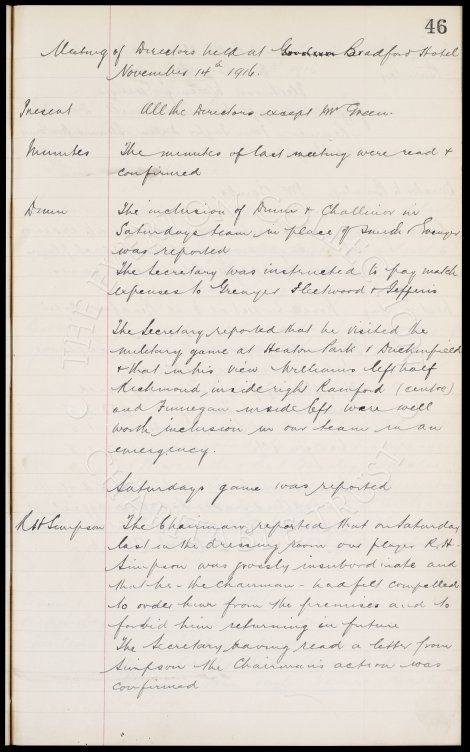 46
Meeting of Directors held at Bradford Hotel
November 14th 1916.
Present All the Directors except Mr Green.
Minutes The minutes of last meeting were read &
confirmed
Dunn The inclusion of Dunn & Challinor in
Saturdays team in place of Smith &
was reported
The Secretary was instructed to pay match
expenses to Granger Fleetwood & Jefferis
The Secretary reported that he visited the
military game at Heaton Park & Duckinfield
& that in his view Williams left half
Richmond inside right Rainford (centre)
and Finnegan inside left were well
worth inclusion in our team in an
emergency.
Saturdays game was reported
R H Simpson The Chairman reported that on Saturday
last in the dressing room our player R. H.
Simpson was grossly insubordinate and
that he - the Chairman - had felt compelled
to order him from the premises and to
forbid him returning in future
The Secretary having read a letter from
Simpson the Chairman's action was
confirmed